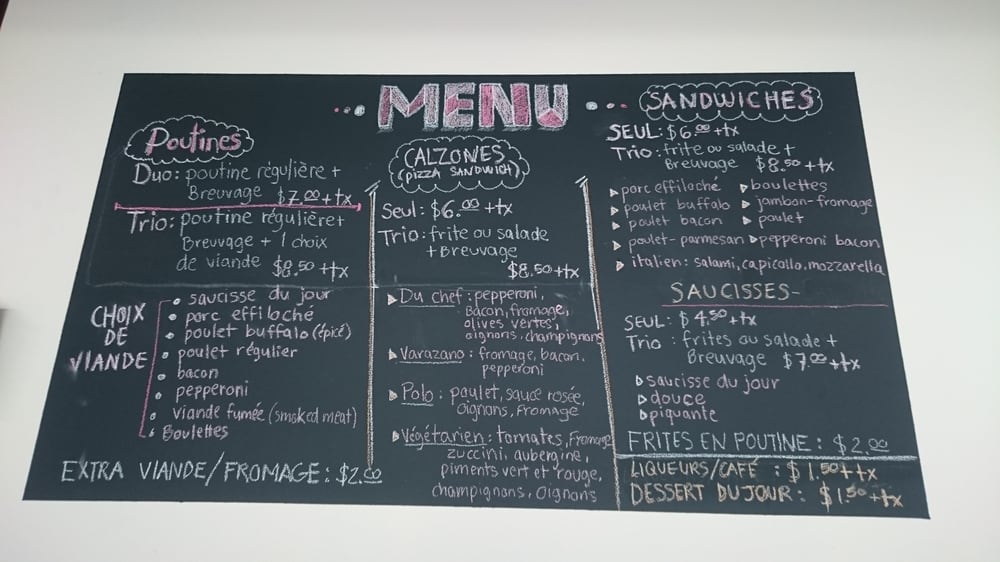 MENU
Poutines
Duo: poutine régulière +
Breuvage $7.00 + tx
Trio: poutine régulière +
Breuvage + 1 choix
de viande $8.50 + tx
CHOIX
DE
VIANDE
saucisse du jour
porc effiloché
poulet buffalo (épicé)
poulet régulier
bacon
pepperoni
viande fumée (smoked meat)
Boulettes
EXTRA VIANDE/FROMAGE: $2.00
CALZONES
(PIZZA SANDWICH)
Seul: $6.00 + tx
Trio: frite ou salade
+ Breuvage
$8.50 + tx
Du chef: pepperoni,
Bacon, fromage,
olives vertes,
oignons, champignons
Varazano: fromage, bacon,
pepperoni
Polo: poulet, sauce rosée,
Oignons, Fromage
Végétarien: tomates, Fromage
zuccini, aubergine,
piments vert et rouge,
champignons, Oignons
SANDWICHES
SEUL: $6.00 + tx
Trio: frite ou salade +
Breuvage $8.50 + tx
porc effiloché boulettes
poulet buffalo jambon-fromage
poulet bacon poulet
poulet-parmesan pepperoni bacon
italien: salami, capicollo, mozzarella
SAUCISSES-
SEUL: $4.50 + tx
Trio: frites ou salade +
Breuvage $7.00 + tx
saucisse du jour
douce
piquante
FRITES EN POUTINE: $2.00
LIQUEURS/CAFÉ : $1.50 + tx
DESSERT DU JOUR: $1.50 + tx